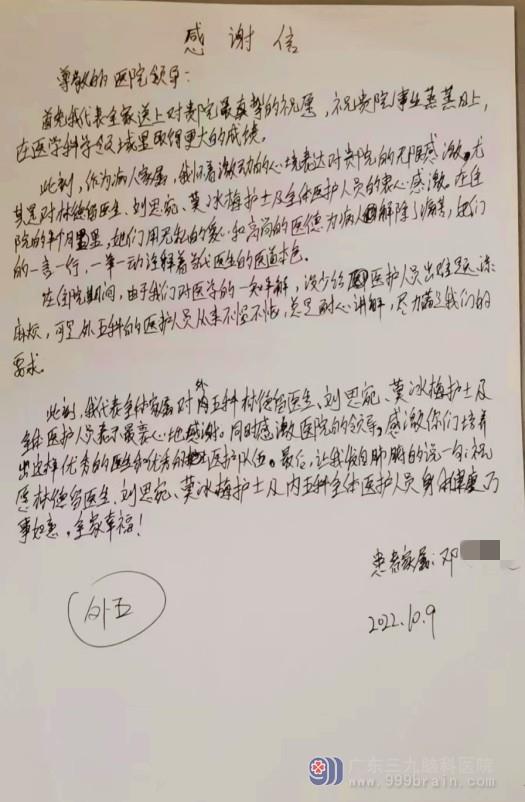 感谢信
尊敬的医院领导：
首先我代表全家送上对贵院最真挚的祝愿，祝贵院事业蒸蒸日上，
在医学科学领域里取得更大的成绩。
此刻，作为病人家属，我们怀着激动的心境表达对贵院的无限感激，尤
其是对林德留医生、刘思宛、莫冰梅护士及全体医护人员的衷心感激。在住
院的个月里，她们用无私的爱心和高尚的医德为病人解除了病害，她们
的一言一行，一举一动诠释着当代医生的医道本色。
在住院期间，由于我们对医学的一知半解，没少给医护人员出难题、添
麻烦，可是外五科的医护人员从来不愠不恼，总是耐心讲解，尽力满足我们的
要求。
此刻，我代表全体家属对外五科林德留医生、刘思宛、莫冰梅护士及
全体医护人员表示最衷心地感谢。同时感激医院的领导，感激你们培养
出这样优秀的医生和优秀的医护队伍。最后，让我发自肺腑的说一句：祝
愿林德留医生、刘思宛、莫冰梅护士及内五科全体医护人员身体健康，万
事如意，全家幸福！
患者家属：邓
2022.10.9
外五
广东三九脑科医院
www.999brain.com